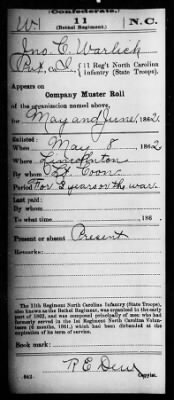 (Confederate.)
W 11 N.C.
(Bethel Regiment.)
Jno. C. Warlick
Pvt, Co. I, 11 Reg't North Carolina
Infantry (State Troops).
Appears on
Company Muster Roll
of the organization named above,
for May and June, 1862.
Enlisted:
When May 8, 1862
Where Lincolnton
By whom Lt. Coon
Period For 3 years or the war
Last paid:
By whom
To what time , 186 .
Present or absent Present
Remarks:
The 11th Regiment North Carolina Infantry (State Troops),
also known as the Bethel Regiment, was organized in the early
part of 1862, and was composed principally of men who had
formerly served in the 1st Regiment North Carolina Volun-
teers (6 months, 1861,) which had been disbanded at the
expiration of its term of service.
Book mark:
R E Dew
(642) Copyist.